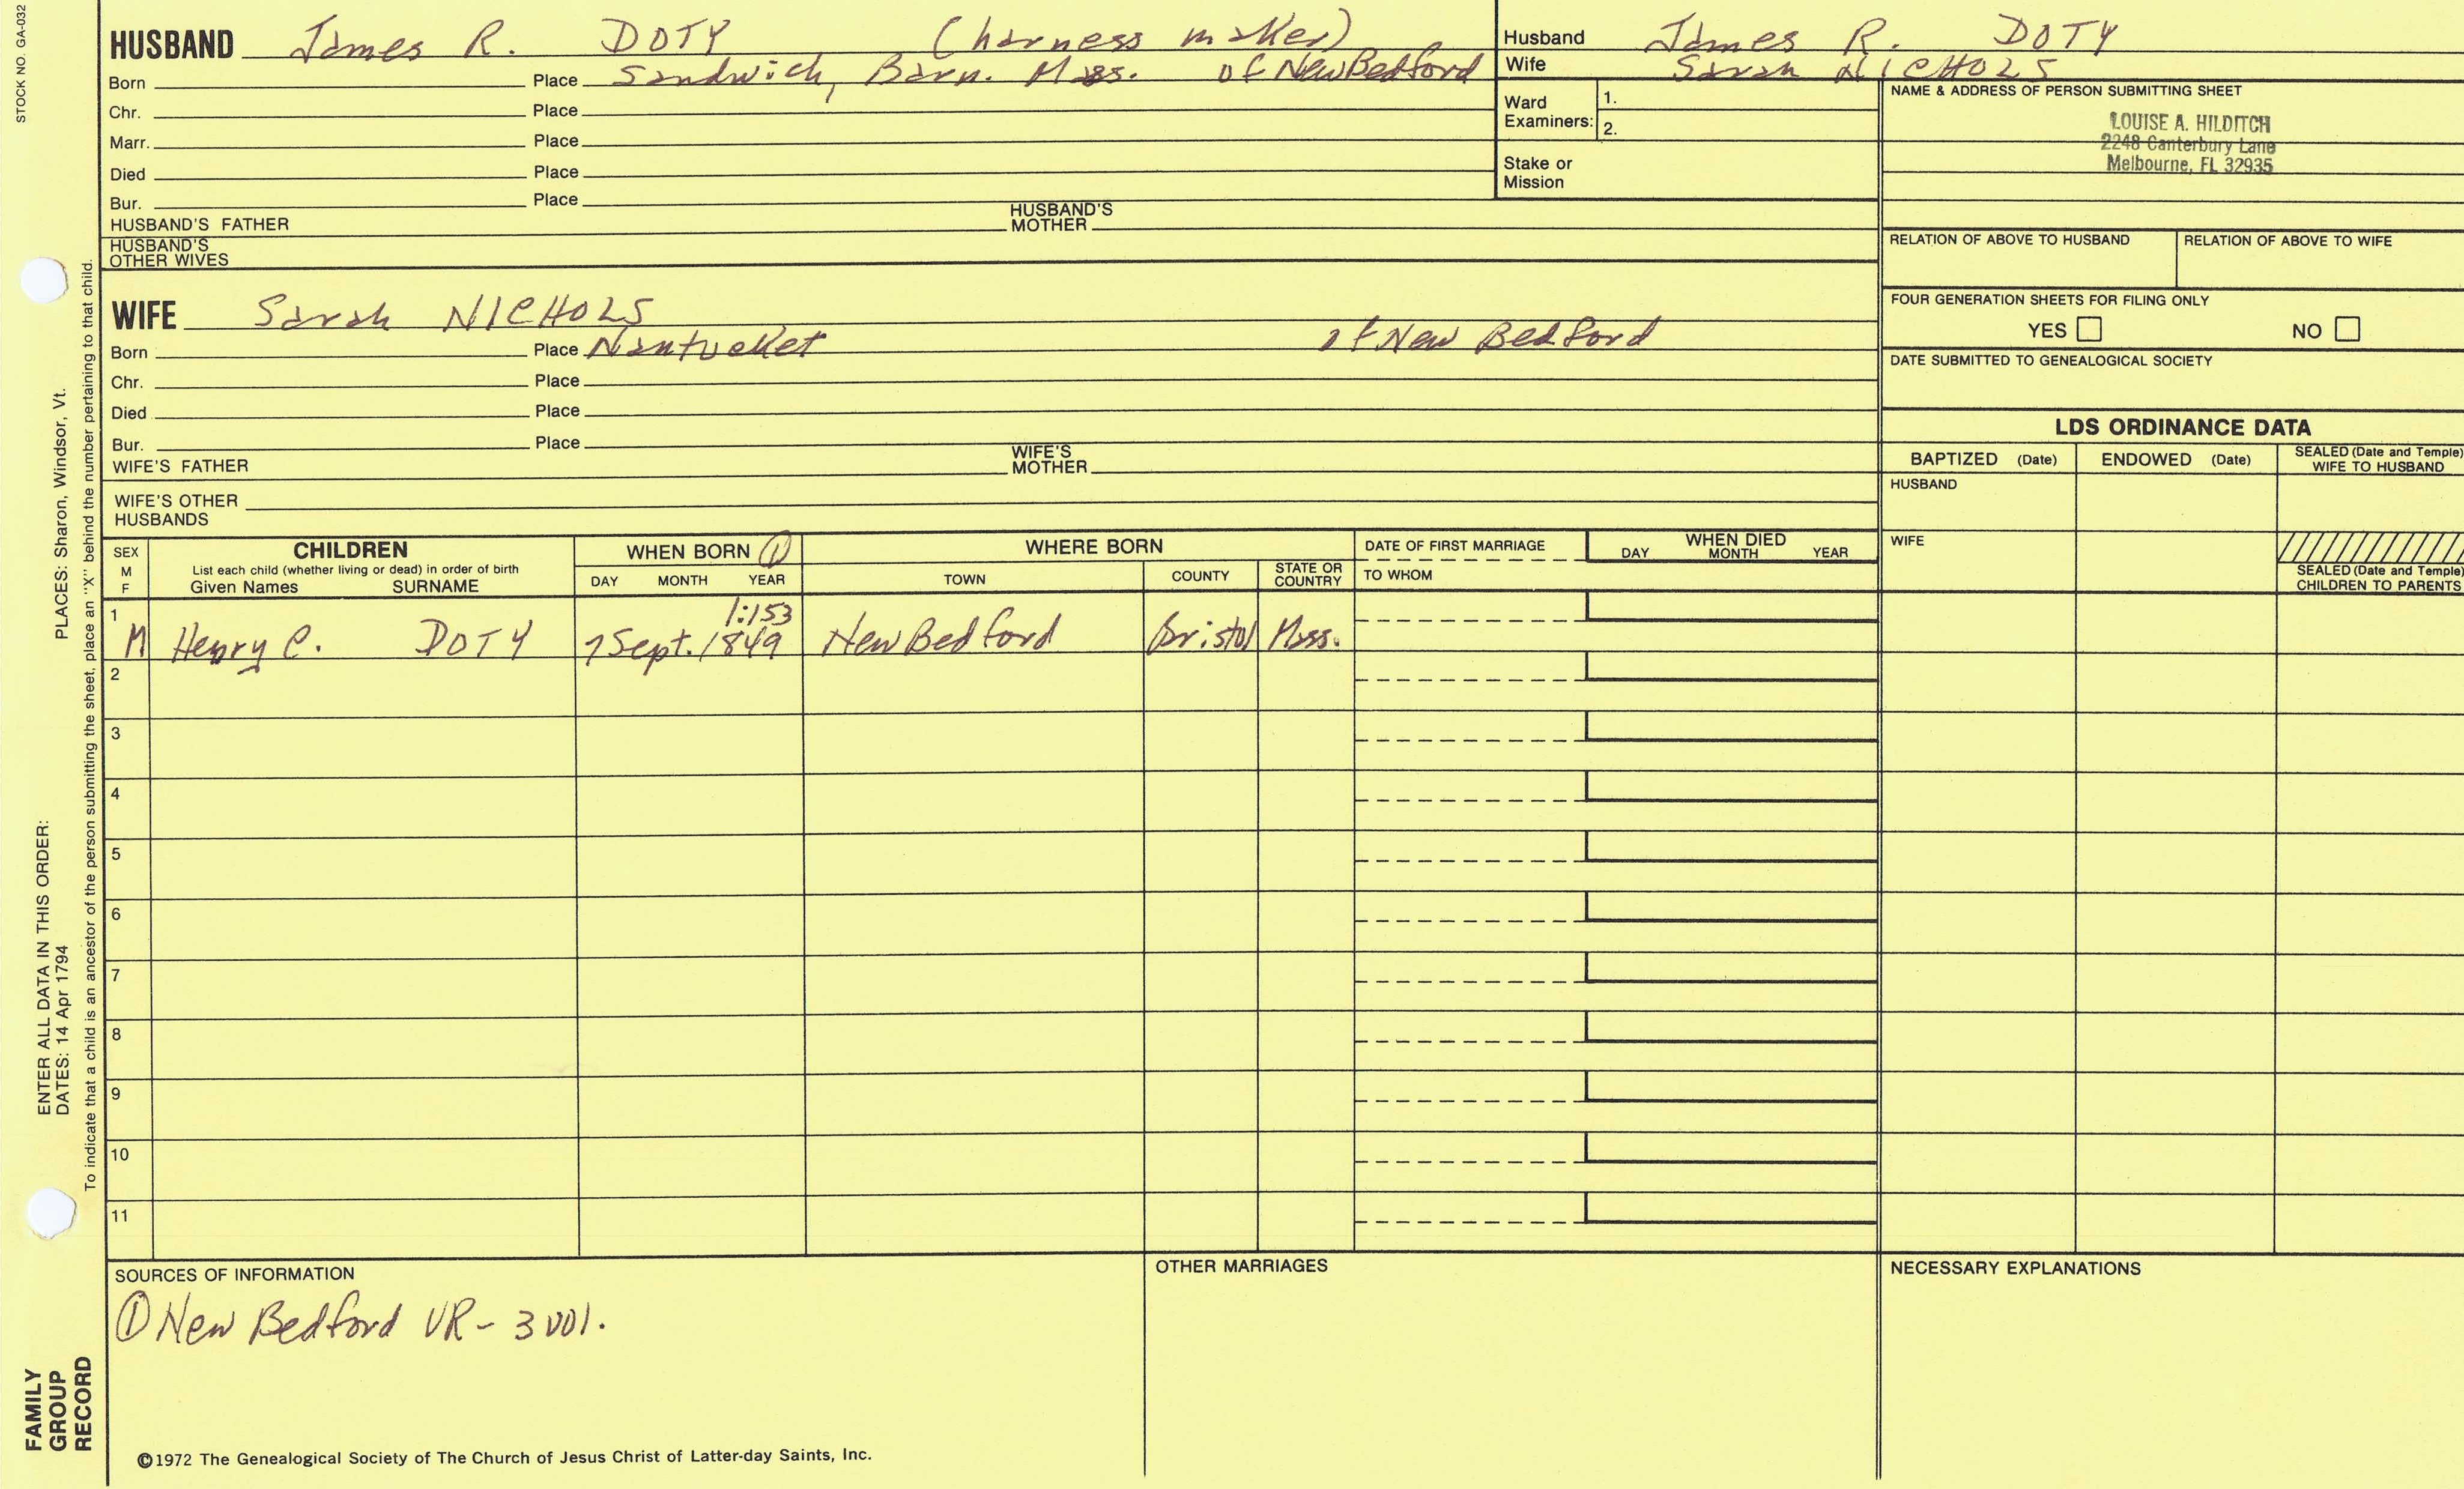 STOCK NO. GA-032
HUSBAND James R. DOTY (harness maker)
Born Place Sandwich, Barn. Mass. of New Bedford
Chr. Place
Marr. Place
Died Place
Bur. Place
HUSBAND'S FATHER HUSBAND'S MOTHER
HUSBAND'S OTHER WIVES
Husband James R. DOTY
Wife Sarah NICHOLS
Ward Examiners: 1.
2.
Stake or Mission
NAME & ADDRESS OF PERSON SUBMITTING SHEET
LOUISE A. HILDITCH
2248 Canterbury Lane
Melbourne, FL 32935
RELATION OF ABOVE TO HUSBAND RELATION OF ABOVE TO WIFE
FOUR GENERATION SHEETS FOR FILING ONLY
YES NO
DATE SUBMITTED TO GENEALOGICAL SOCIETY
WIFE Sarah NICHOLS
Born Place Nantucket of New Bedford
Chr. Place
Died Place
Bur. Place
WIFE'S FATHER WIFE'S MOTHER
WIFE'S OTHER HUSBANDS
LDS ORDINANCE DATA
BAPTIZED (Date) ENDOWED (Date) SEALED (Date and Temple) WIFE TO HUSBAND
HUSBAND
WIFE
SEALED (Date and Temple) CHILDREN TO PARENTS
SEX M F
CHILDREN
List each child (whether living or dead) in order of birth
Given Names SURNAME
WHEN BORN ①
DAY MONTH YEAR
WHERE BORN
TOWN COUNTY STATE OR COUNTRY
DATE OF FIRST MARRIAGE
TO WHOM
WHEN DIED
DAY MONTH YEAR
1 1:153
M Henry C. DOTY 7 Sept. 1849 New Bedford Bristol Mass.
2
3
4
5
6
7
8
9
10
11
SOURCES OF INFORMATION
① New Bedford VR - 3 vol.
OTHER MARRIAGES
NECESSARY EXPLANATIONS
©1972 The Genealogical Society of The Church of Jesus Christ of Latter-day Saints, Inc.
FAMILY
GROUP
RECORD
ENTER ALL DATA IN THIS ORDER:
DATES: 14 Apr 1794 PLACES: Sharon, Windsor, Vt.
To indicate that a child is an ancestor of the person submitting the sheet, place an "X" behind the number pertaining to that child.